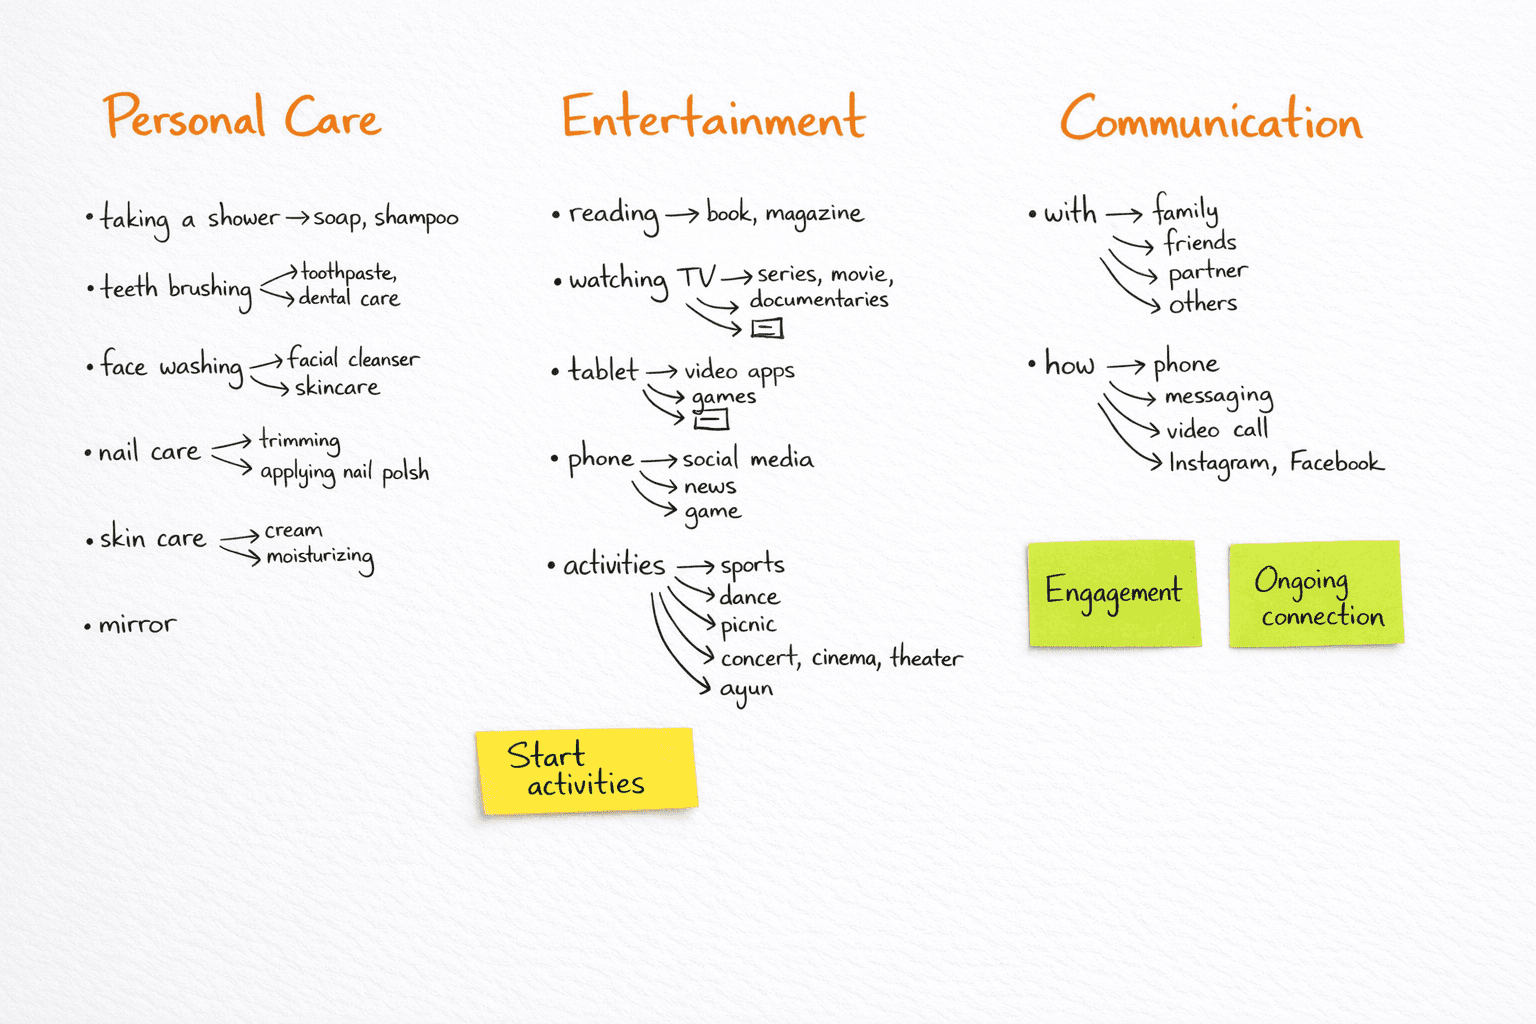 Personal Care
• taking a shower → soap, shampoo
• teeth brushing → toothpaste,
→ dental care
• face washing → facial cleanser
→ skincare
• nail care → trimming
→ applying nail polsh
• skin care → cream
→ moisturizing
• mirror
Entertainment
• reading → book, magazine
• watching TV → series, movie,
→ documentaries
• tablet → video apps
→ games
• phone → social media
→ news
→ game
• activities → sports
→ dance
→ picnic
→ concert, cinema, theater
→ ayun
Start
activities
Communication
• with → family
→ friends
→ partner
→ others
• how → phone
→ messaging
→ video call
→ Instagram, Facebook
Engagement
Ongoing
connection